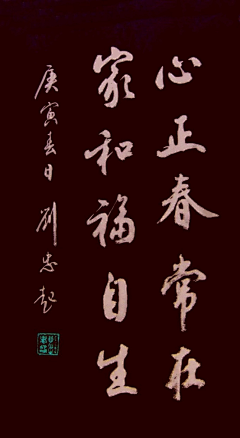 心正春常在
家和福自生
庚寅春日劉忠起